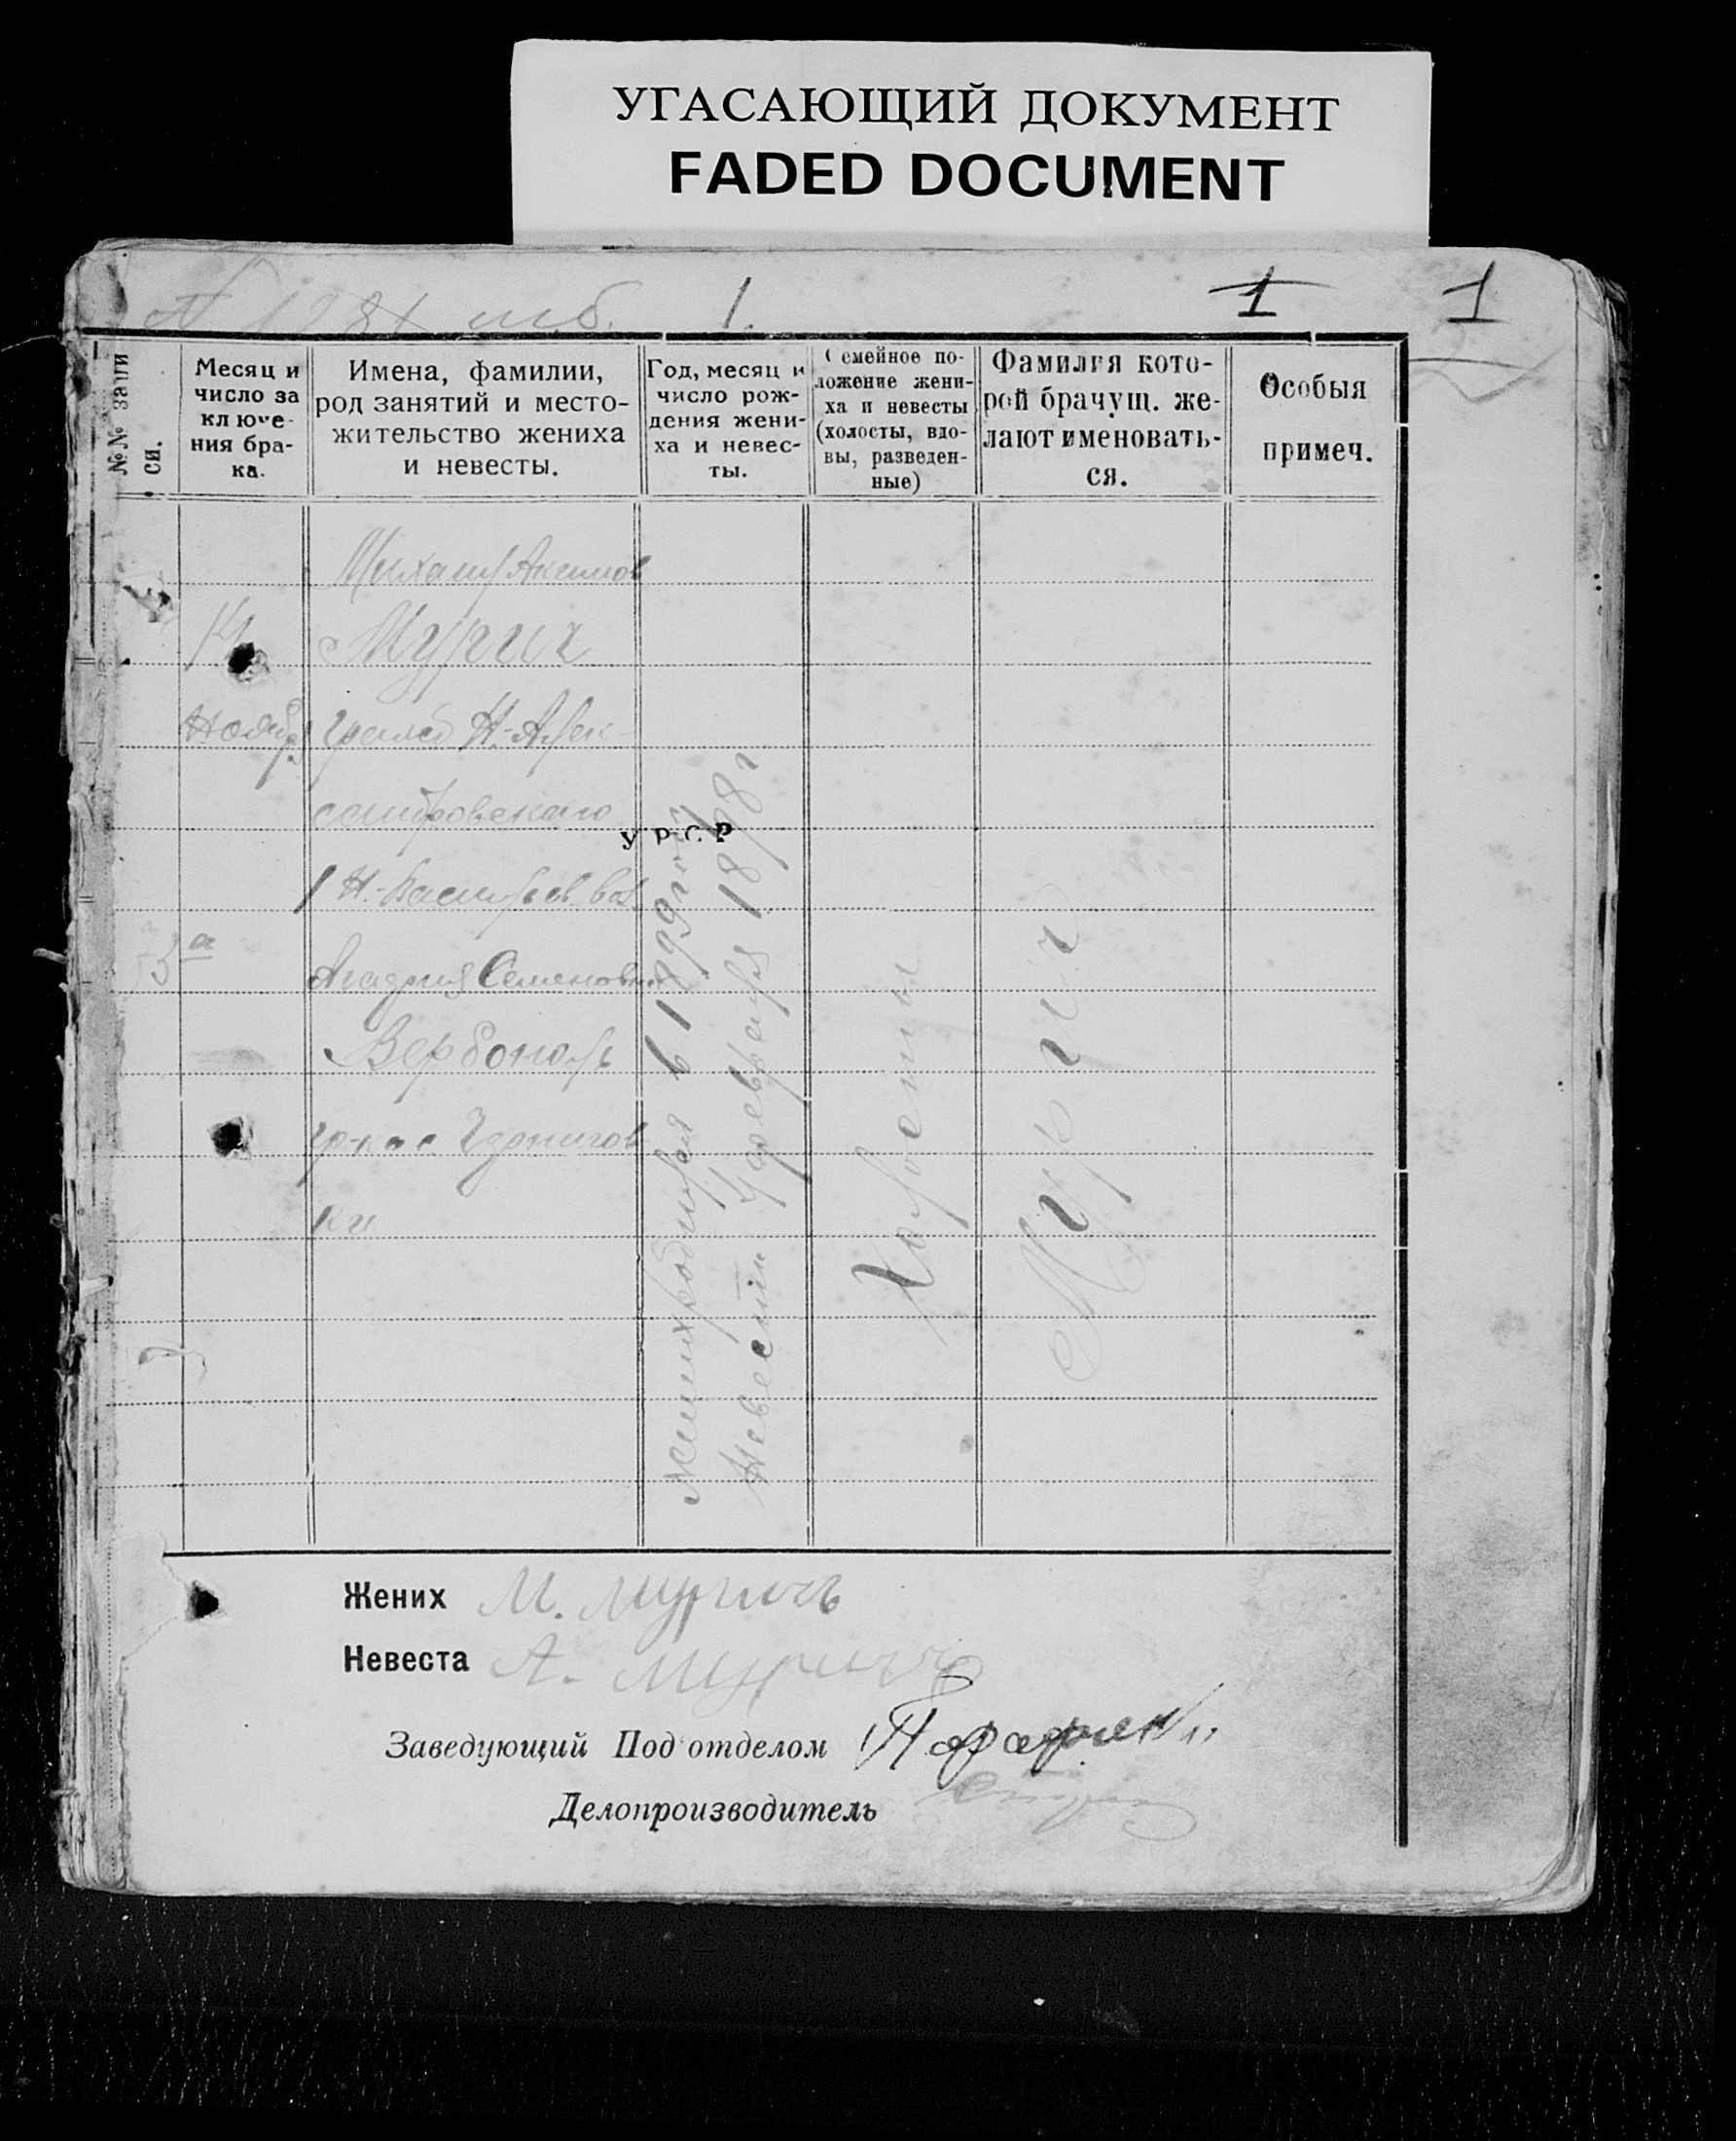 УГАСАЮЩИЙ ДОКУМЕНТ
FADED DOCUMENT
1. 1 1
№№ запи
си.
Месяц и
число за
ключе-
ния бра-
ка.
Имена, фамилии,
род занятий и место-
жительство жениха
и невесты.
Год, месяц и
число рож-
дения жени-
ха и невес-
ты.
Семейное по-
ложение жени-
ха и невесты
(холосты, вдо-
вы, разведен-
ные)
Фамилия кото-
рой брачущ. же-
лают именовать-
ся.
Особыя
примеч.
14
Ноября
Михаил Акимов
Мурич
Н-Алек-
сандровскаго
Н-Васильев. вол.
Агафия Семеновна
Вербополь
гр-ка с Чернигов-
ки
Жених родился 6 1899 году
Невеста 4 февраля 1898 г
Холосты
Мурич
У Р С Р
Жених М. Муричъ
Невеста А. Мурич
Заведующий Подотделом
Делопроизводитель